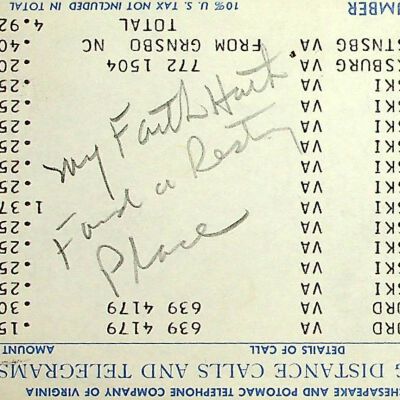 my Faith Hath
Found a Resting
Place
CHESAPEAKE AND POTOMAC TELEPHONE COMPANY OF VIRGINIA
G DISTANCE CALLS AND TELEGRAMS
DETAILS OF CALL AMOUNT
ORD VA 639 4179 .15
ORD VA 639 4179 .30
SKI VA .25
SKI VA .25
SKI VA .25
SKI VA 1.37
SKI VA .25
SKI VA .25
SKI VA .25
SKI VA .25
SKI VA .25
KSBURG VA 772 1504 .20
STNSBG VA FROM GRNSBO NC .40
TOTAL 4.92
NUMBER 10% U. S. TAX NOT INCLUDED IN TOTAL